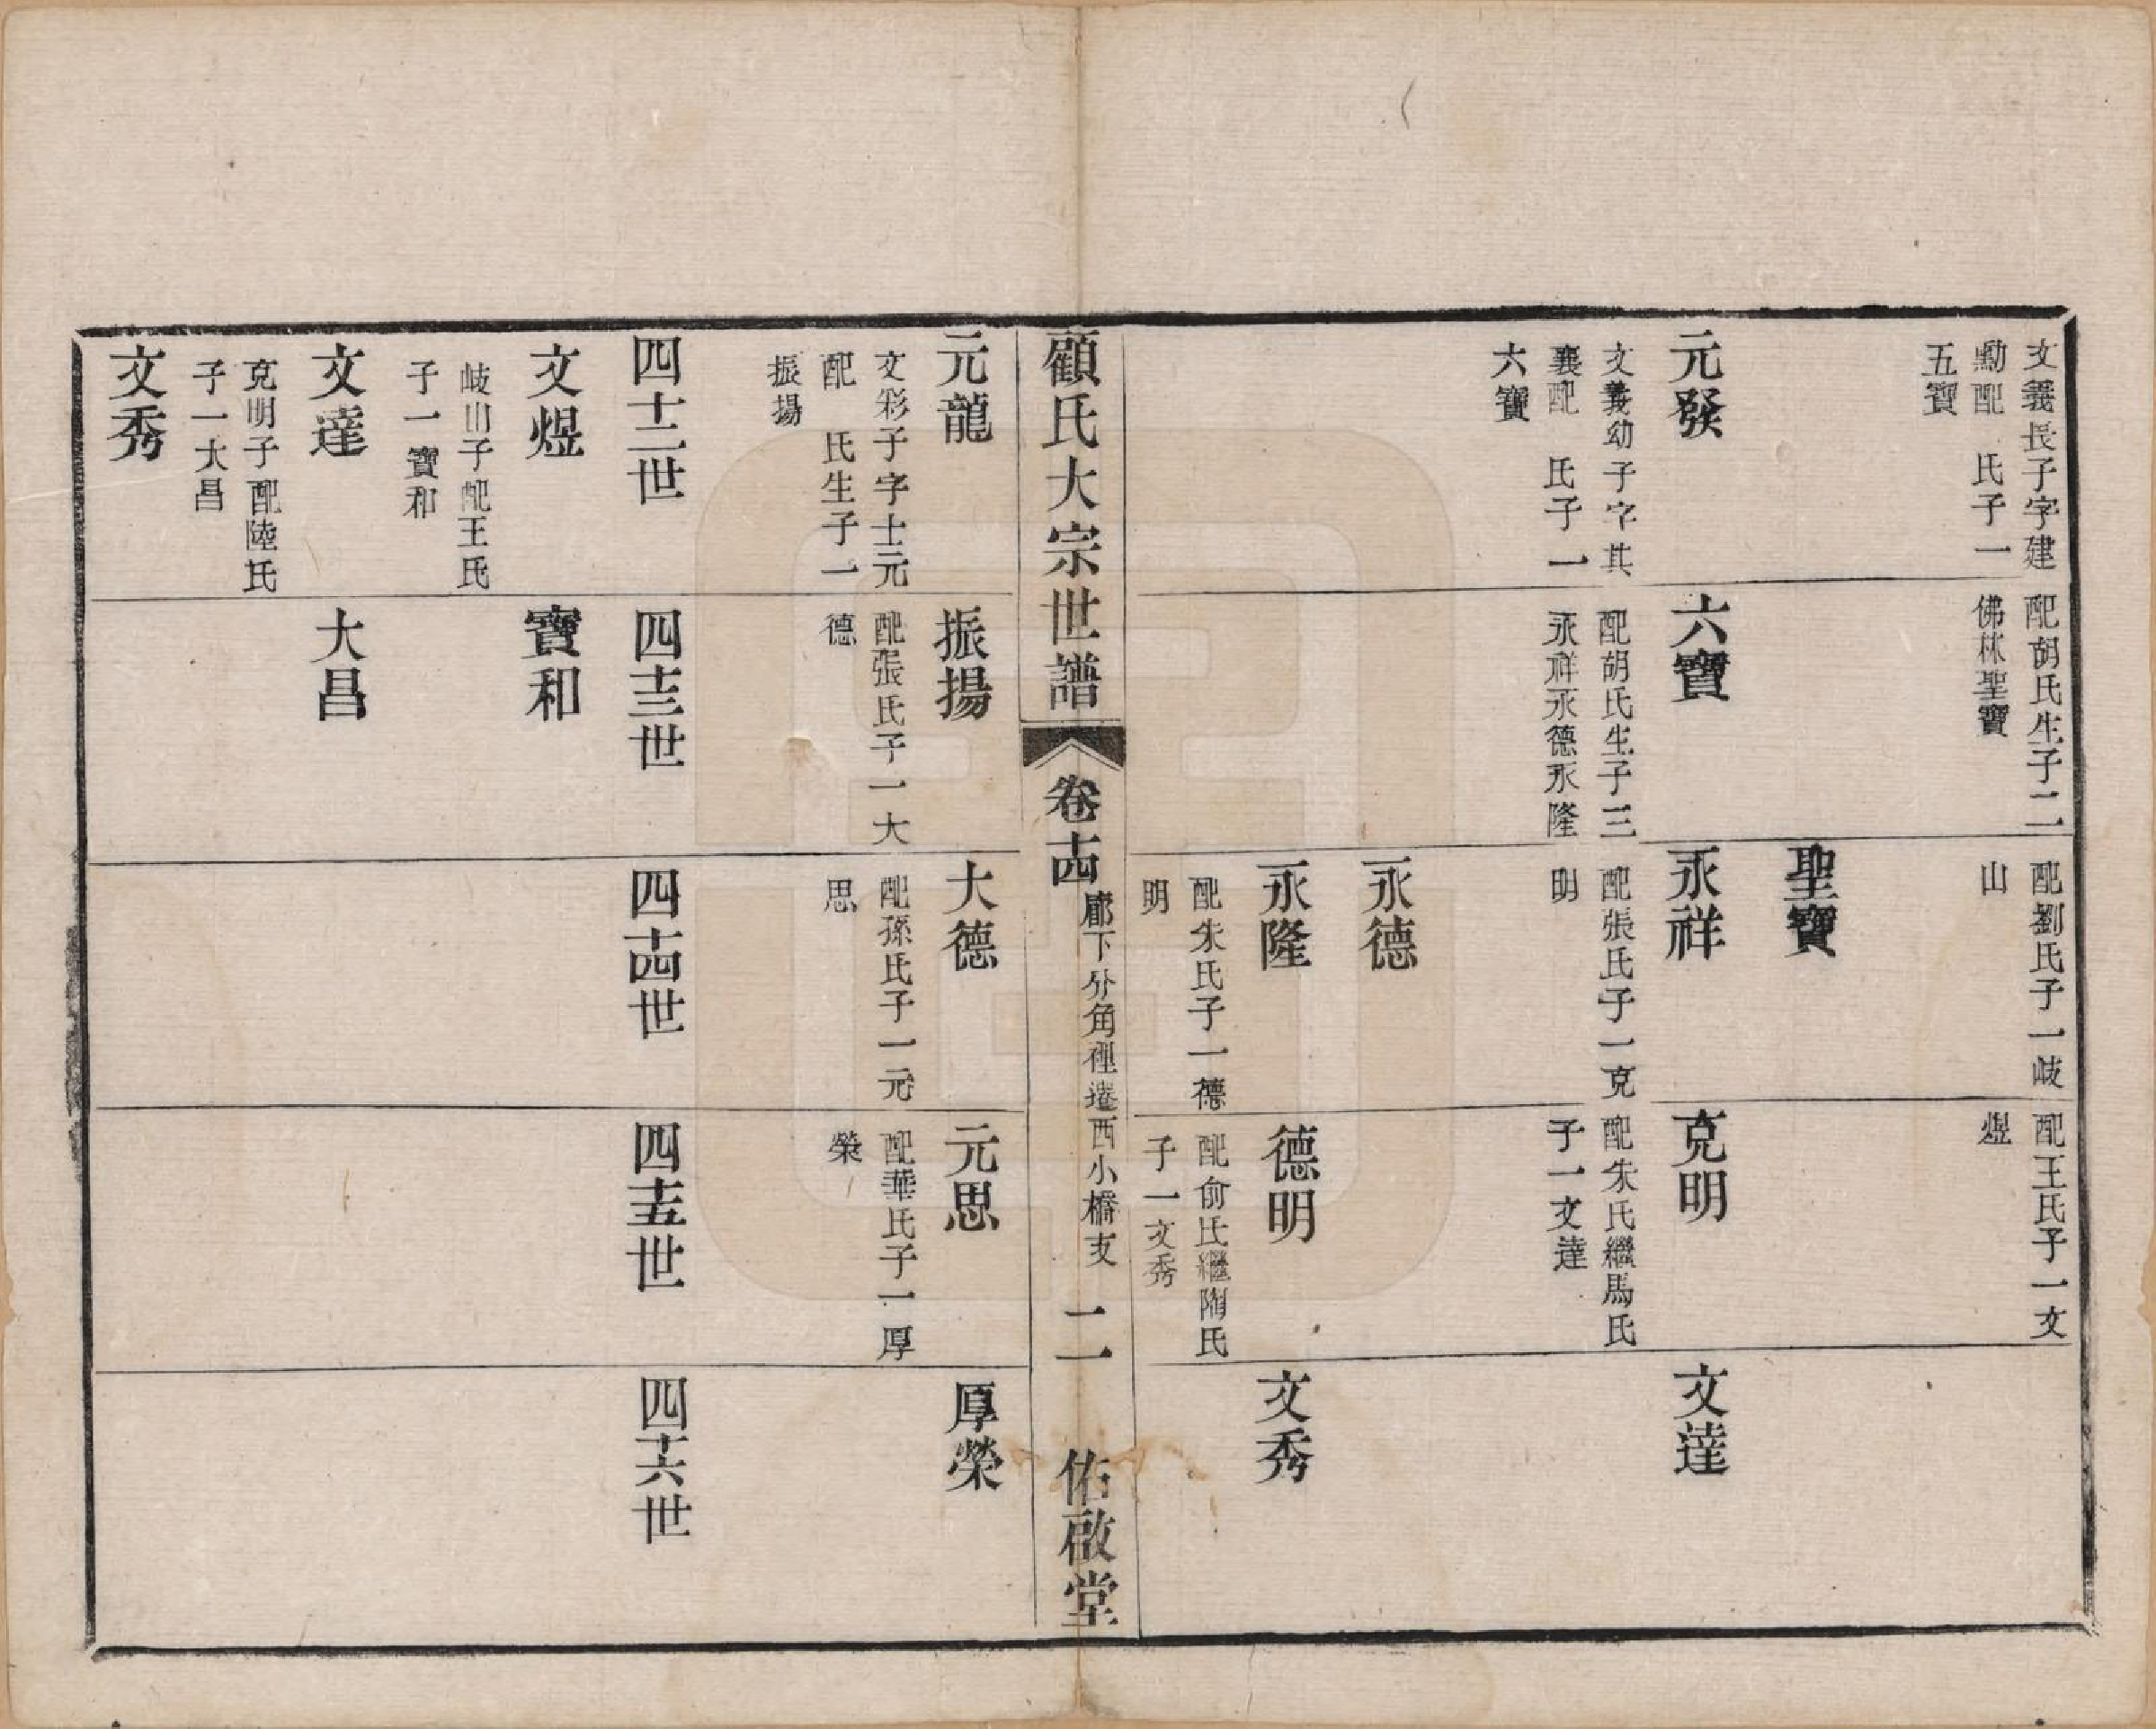 文義長子字建
勳配　氏子一
五寶
元發
文義幼子字其
襄配　氏子一
六寶
配胡氏生子二
佛林聖寶
六寶
配胡氏生子三
永祥永德永隆
配劉氏子一岐
山
聖寶
永祥
配張氏子一克
明
永德
永隆
配朱氏子一德
明
配王氏子一文
煜
克明
配朱氏繼馬氏
子一文達
德明
配俞氏繼陶氏
子一文秀
文達
文秀
顧氏大宗世譜
卷十四
廊下分角裡遷西小橋支
二
佑啟堂
元龍
文彩子字士元
配　氏生子一
振揚
振揚
配張氏子一大
德
大德
配孫氏子一元
思
元思
配華氏子一厚
榮
厚榮
四十二世
四十三世
四十四世
四十五世
四十六世
文煜
岐山子配王氏
子一寶和
寶和
文達
克明子配陸氏
子一大昌
大昌
文秀